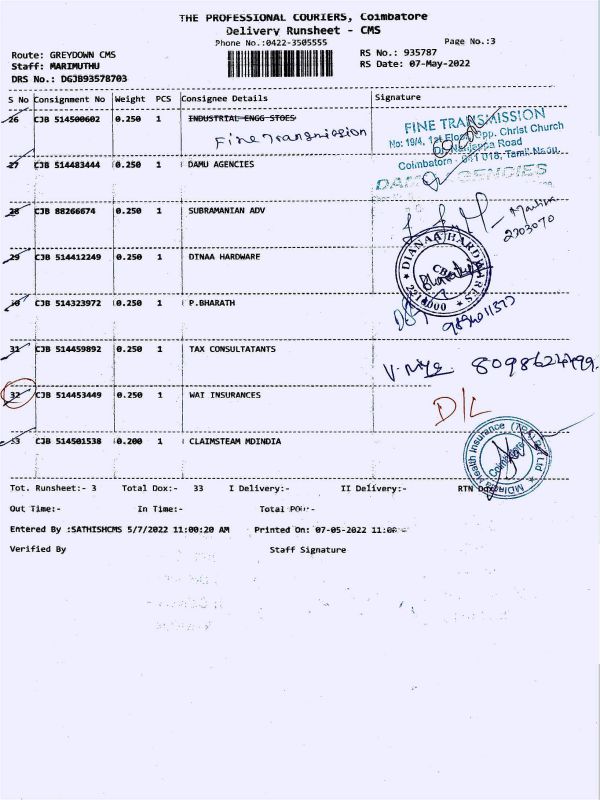 THE PROFESSIONAL COURIERS, Coimbatore
Delivery Runsheet - CMS
Phone No.:0422-3505555
Page No.:3
Route: GREYDOWN CMS
RS No.: 935787
Staff: MARIMUTHU
RS Date: 07-May-2022
DRS No.: DGJB93578703
S No Consignment No Weight PCS Consignee Details Signature
26 CJB 514500602 0.250 1 INDUSTRIAL ENGG STOES
Fine Transmission
FINE TRANSMISSION
No: 19/4, 1st Floor, Opp. Christ Church
Dr. Nanjappa Road
Coimbatore - 641 018, Tamil Nadu.
27 CJB 514483444 0.250 1 DAMU AGENCIES
DAMU AGENCIES
28 CJB 88266674 0.250 1 SUBRAMANIAN ADV
2303070
29 CJB 514412249 0.250 1 DINAA HARDWARE
DIANAA HARDWARES
CBE
2214000
30 CJB 514323972 0.250 1 P.BHARATH
31 CJB 514459892 0.250 1 TAX CONSULTATANTS
32 CJB 514453449 0.250 1 WAI INSURANCES
D/L
33 CJB 514501538 0.200 1 CLAIMSTEAM MDINDIA
MDIndia Health Insurance (TPA) Pvt Ltd
Coimbatore
Tot. Runsheet:- 3 Total Dox:- 33 I Delivery:- II Delivery:- RTN Dox:-
Out Time:- In Time:- Total POD:-
Entered By :SATHISHCMS 5/7/2022 11:00:20 AM Printed On: 07-05-2022
Verified By Staff Signature